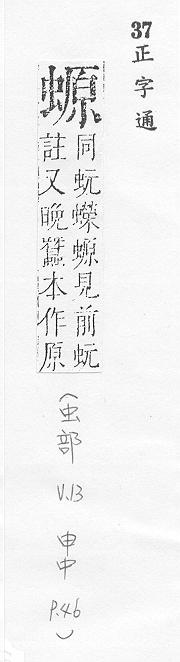 37
正字通
螈
同蚖蠑螈見前蚖
註又晚蠶本作原
(虫部 V.13 申中 P.46)